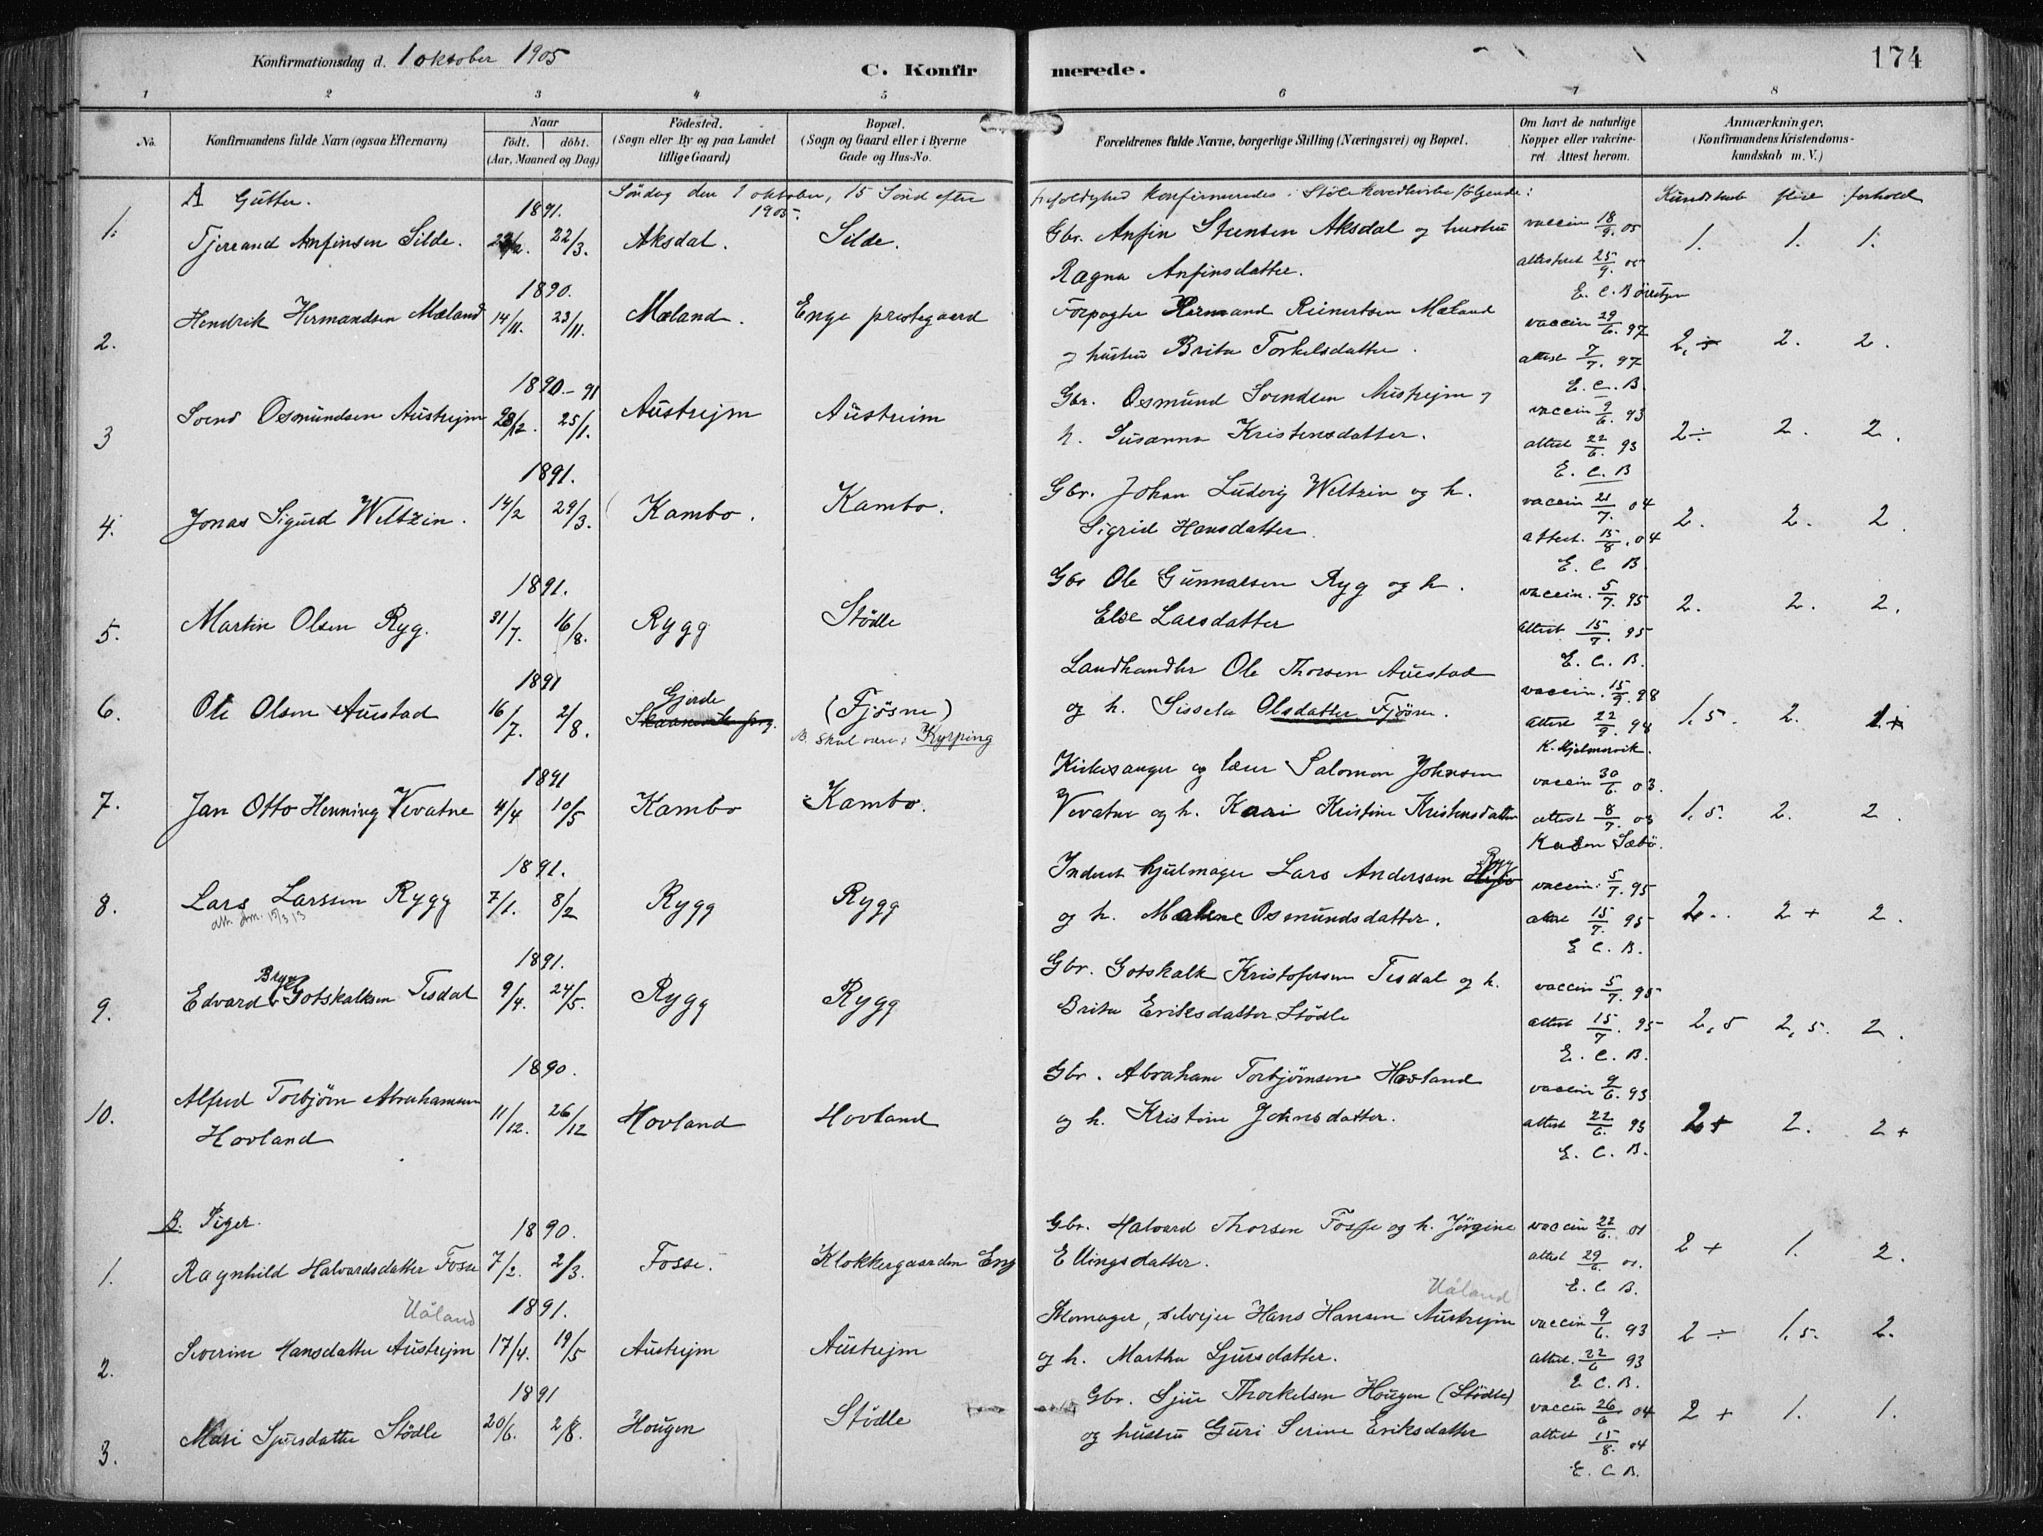 Konfirmationsdag d. 1 oktober 1905
C. Konfirmerede.
174
1 2 3 4 5 6 7 8
No. Konfirmandens fulde Navn (ogsaa Efternavn) Naar födt. döbt. (Aar, Maaned og Dag) Födested. (Sogn eller By og paa Landet tillige Gaard) Bopæl. (Sogn og Gaard eller i Byerne Gade og Hus-No. Forældrenes fulde Navne, borgerlige Stilling (Næringsvei) og Bopæl. Om havt de naturlige Kopper eller vakcineret Attest herom. Anmærkninger. (Konfirmandens Kristendomskundskab m. V.)
A Gutter. Söndag den 1 oktober, 15 Sönd efter trefoldighed konfirmeredes i Støle hovedkirke følgende: Kundskab flid forhold
1905.
1891.
1. Tjerrand Anfinsen Silde. 22/3. Aksdal. Silde. Gbr. Anfin Steensen Aksdal og hustru vaccin 18/9. 05 1. 1. 1.
Ragna Anfinsdatter. attesteret 25/9. 05
E. C. Börretzen
1890.
2. Hendrik Hermandsen Mæland 14/11. 23/11. Mæland. Enge prestegaard Forpagter Hermand Reinertsen Mæland vaccin 29/6. 97 2,÷ 2. 2.
og hustru Brita Torkelsdatter. attest 7/7. 97
E. C. B.
1890-91
3 Svend Osmundsen Austrejm 28/12. 25/1. Austrejm Austreim Gbr. Osmund Svendsen Austrejm og vaccin 9/6. 93 2÷ 2. 2.
h. Susanna Kristensdatter. attest 22/6. 93
E. C. B
1891.
4. Jonas Sigurd Weltzin. 14/2 29/3. Kambo. Kambo. Gbr. Johan Ludvig Weltzin og h. vaccin 21/7. 04 2. 2. 2.
Sigrid Hansdatter. attest. 15/8. 04
E. C. B.
1891.
5. Martin Olsen Ryg. 31/7. 16/8. Rygg Stödle Gbr Ole Gunnarsen Ryg og h. vaccin. 5/7. 95 2. 2. 2.
Else Larsdatter attest 15/7. 95
E. C. B.
1891
6. Ole Olsen Austad 16/7. 2/8. Gjerde (Fjøsne) Landhandler Ole Thorsen Austad vaccin. 15/9. 98 1,5. 2. 1+
NB. Skal være: Kyrping og h. Sissela Olsdatter Fjøsne. attest 22/9. 98
K. Hjelmervik.
1891
7. Jan Otto Henning Vevatne 4/4 10/5 Kambo Kambo. Kirkesanger og lærer Salomon Johnsen vaccin 30/6. 03. 1,5. 2. 2.
Vevatne og h. Kari Kristine Kristensdatter attest 8/7. 03
Karen Sæbö.
1891.
8. Lars Larssen Rygg 7/1. 8/2 Rygg Rygg Inderst hjulmager Lars Anderssen Rygg vaccin. 5/7. 95 2.. 2+ 2.
att. dm. 15/3 13 og h. Malene Osmundsdatter. attest 15/7. 95
E C. B.
1891.
9. Edvard Gotskalksen Tesdal 9/4. 24/5. Rygg Rygg Gbr. Gotskalk Kristofersen Tesdal og h. vaccin 5/7. 95 2,5 2,5. 2.
Brita Eriksdatter Stödle attest 15/7 95
E. C. B.
1890.
10. Alfred Torbjørn Abrahamsen 11/12. 26/12 Hovland Hovland Gbr. Abraham Torbjørnsen Hovland vaccin 9/6. 93 2+ 2. 2+
Hovland og h. Kristine Johnsdatter. attest 22/6. 93
E. C. B.
B. Piger.
1890.
1. Ragnhild Halvardsdatter Fosse 7/2. 2/3. Fosse. Klokkergaarden Eng Gbr. Halvard Thorsen Fosse og h. Jørgine vaccin 22/6. 01 2+ 1. 2.
Ellingsdatter. attest 29/6. 01.
E. C B.
Uåland 1891. Uåland
2. Severine Hansdatter Austrejm 17/4. 19/5 Austrejm Austrejm Skomager, selvejer Hans Hansen Austrejm vaccin 9/6. 93 2÷ 1,5. 2.
og h. Martha Sjursdatter. attest. 22/6 93
E C. B.
1891
3. Mari Sjursdatter Stödle 20/6. 2/8. Hougen Stödle Gbr. Sjur Thorkelsen Hougen (Stödle) vaccin 26/6 04 2+ 1. 1.
og hustru Guri Serine Eriksdatter attest 15/8. 04
E. C B.